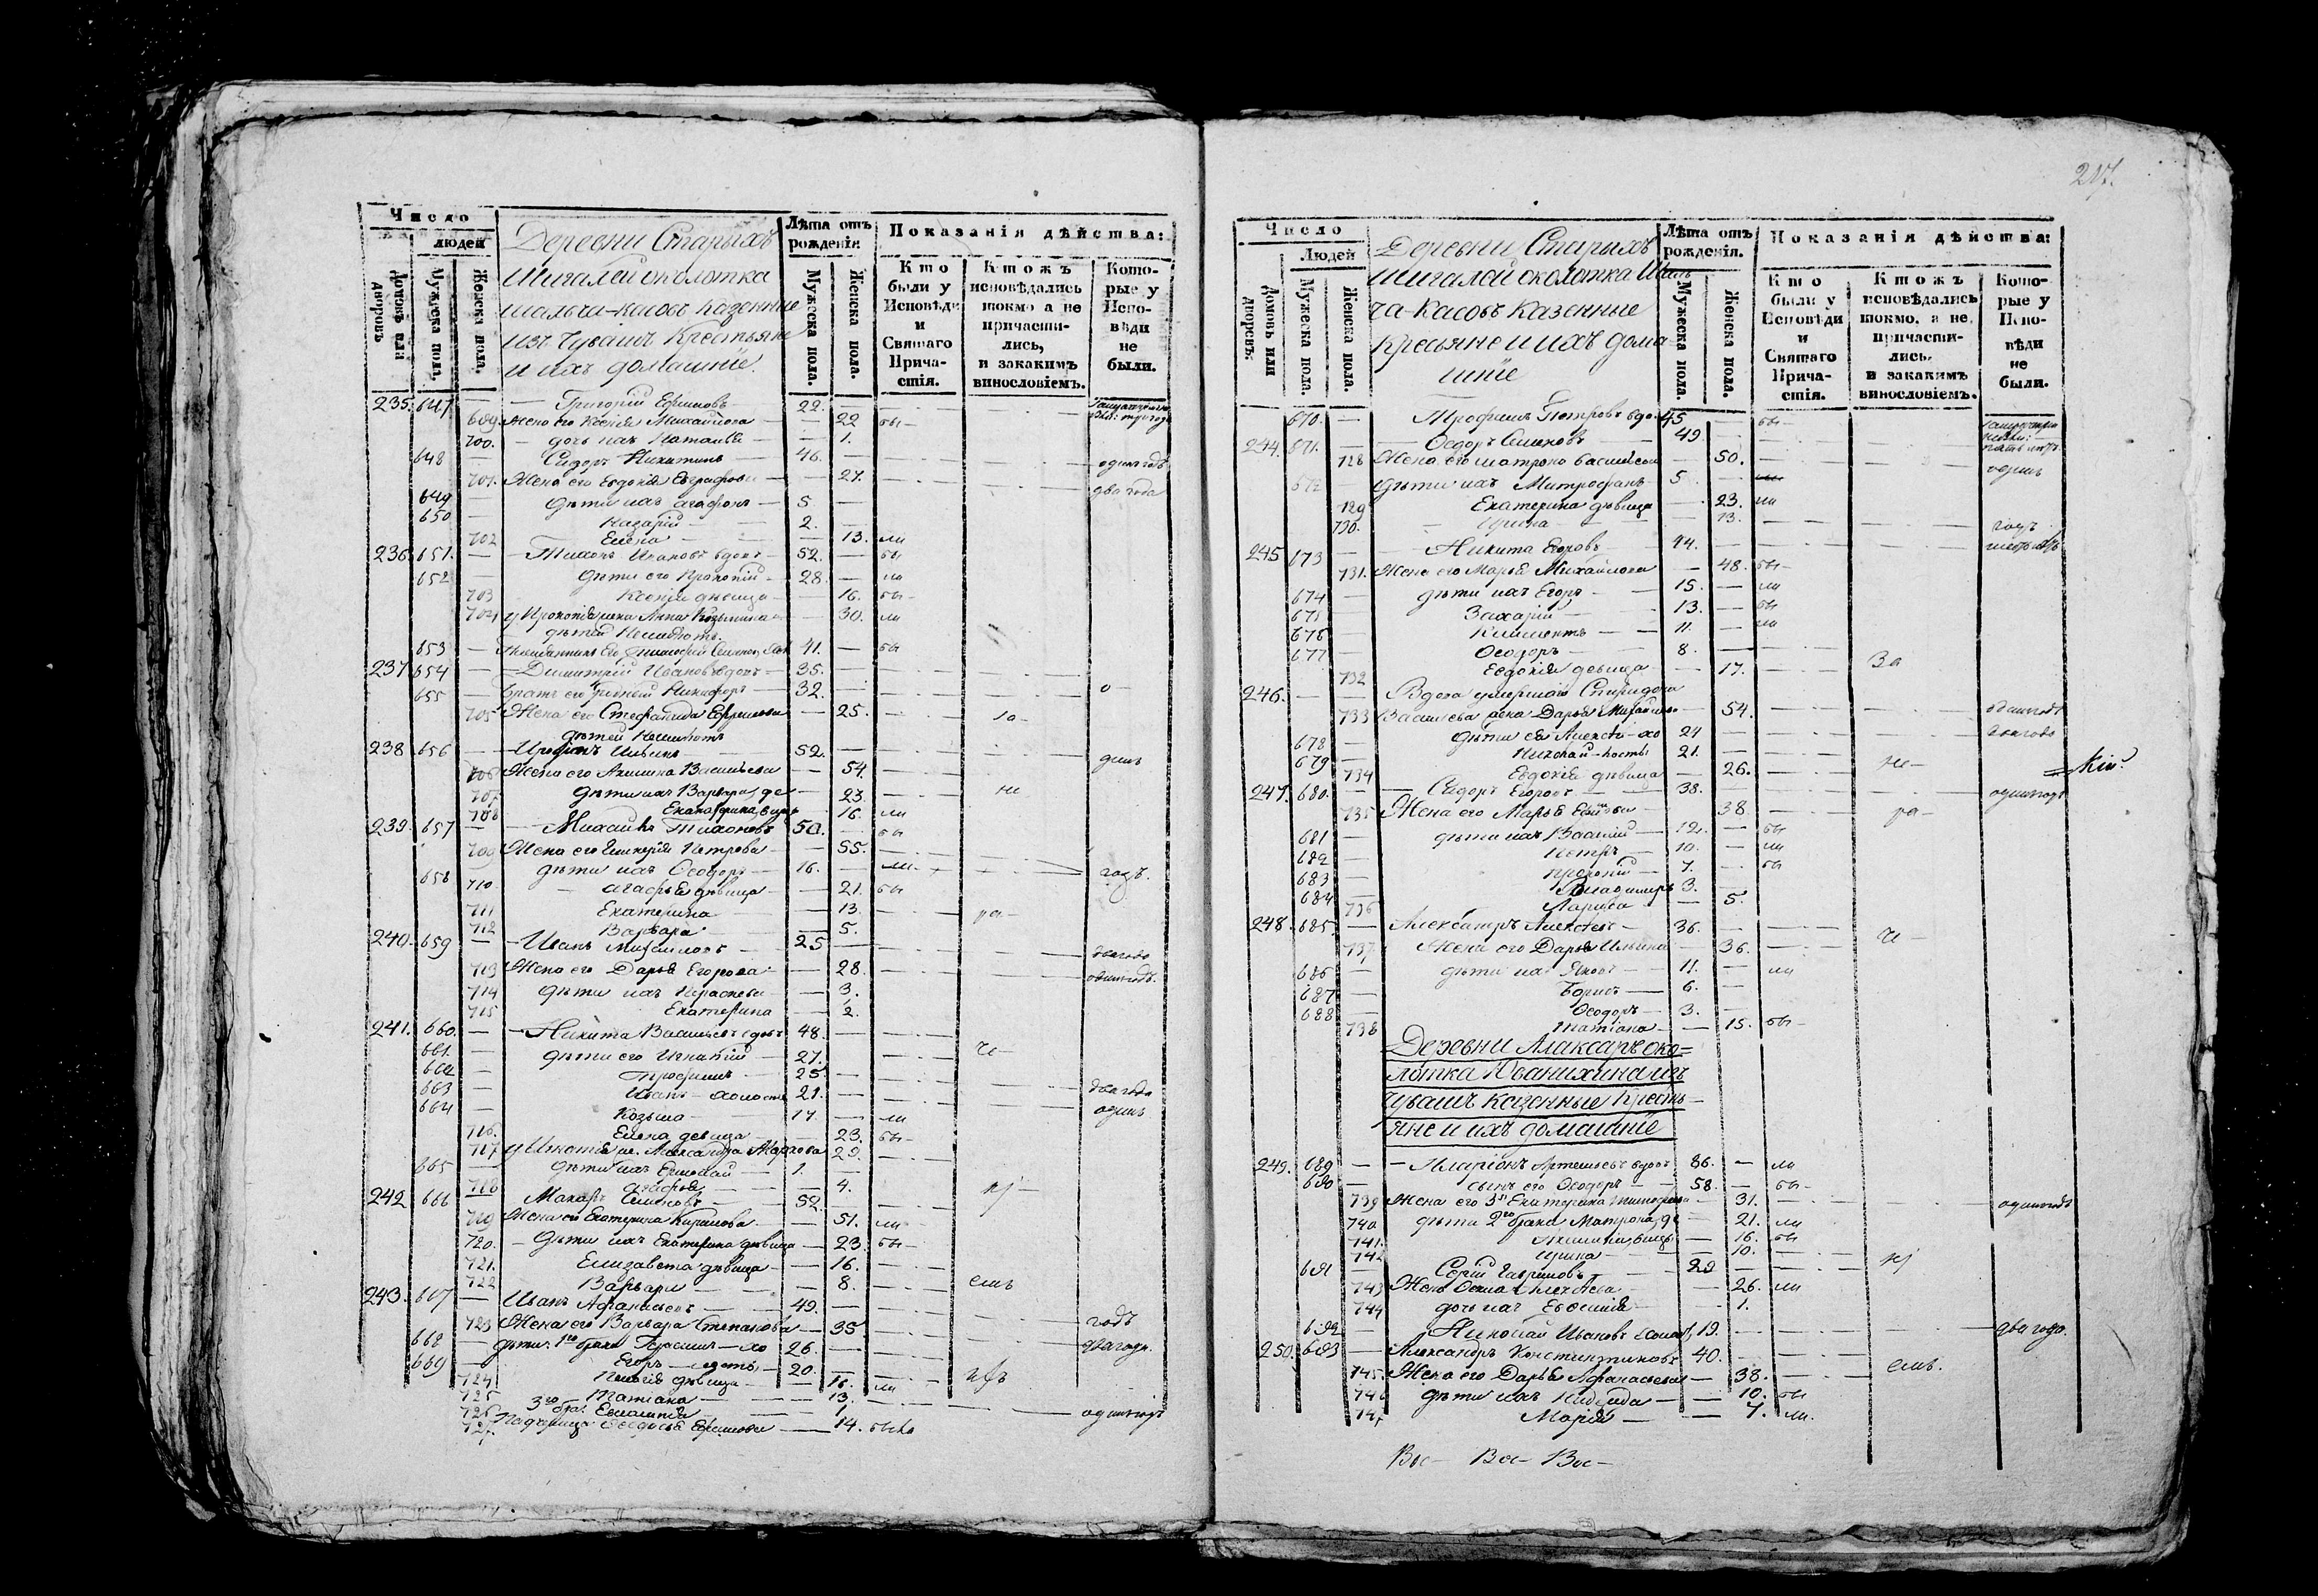 Число
людей
Домовъ или дворовъ
Мужеска пола,
Женска пола.
Деревни Старыхъ
Шигалей околотка
казенные
изъ Чувашъ Крестьяне
и ихъ домашніе.
Лѣта отъ рожденія
Мужеска пола.
Женска пола.
Показанія дѣйства:
Кто были у Исповѣди и Святаго Причастія.
Ктожъ исповѣдались токмо а не причастились, и закакимъ винословіемъ.
Которые у Исповѣди не были.
235. 647. — Григорій Ефимовъ 22.
699. Жена его Ксенія Михайлова — 22 бы-
700. — дочь ихъ Наталія — 1.
648 Сидоръ Никитинъ 46. одинъ годъ
701. Жена его Евдокія Евграфова — 27. два года
649 дѣти ихъ Агафонъ — 5
650 Назарій 2.
702 Елена — 13. ли
236. 651. — Тихонъ Ивановъ вдовъ — 52. — бы
652 дѣти его Прокопій — 28. — ли
703 Ксенія дѣвица — 16. бы-
704 у Прокопія жена Анна Козьмина — 30. ли
дѣтей Неимѣютъ.
653 41. — бы
237. 654 — Димитрій Ивановъ вдовъ — 35.
655 — братъ его Никифоръ — 32.
705 Жена его Стефанида Ефремова — 25.
дѣтей Неимѣютъ
238 656 52.
706 Жена его Акилина Васильева — 54. динъ
707 дѣти ихъ Варвара де — 23. не
708 Екатерина 16. ли
239. 657 — Михаилъ Тихоновъ 50. — бы
709 Жена его Гликерія Петрова — 55.
658 дѣти ихъ Ѳеодоръ — 16. — ли. годъ.
710 — Агафья дѣвица — 21. бы
711 Екатерина — 13. ра-
712 Варвара — 5.
240. 659 — Иванъ Михайловъ — 25 два года
713 Жена его Дарья Егорова — 28. одингодъ.
714 дѣти ихъ Параскева — 3.
715 Екатерина — 2.
241. 660. — Никита Васильевъ вдовъ 48.
661. — дѣти его Игнатій — 27. че-
662 — Трофимъ — 25
663 — Иванъ — холостъ 21. — два года
664 — Козьма — 17. — ли одинъ
716. Елена девица — 23. бы-
717 у Игнатія же. Александра Маркова 29.
665 — дѣти ихъ Ермолай — 1.
718 Агафья — 4.
242 666 Макаръ Семеновъ — 52.
719 Жена его Екатерина Кирилова — 51. ли
720. — дѣти ихъ Екатерина дѣвица — 23. бы-
721. Елизавета дѣвица — 16.
722 Варвара — 8. емъ
243. 667 — Иванъ Афанасьевъ — 49.
723 Жена его Варвара Степанова — 35 годъ
668 — дѣти 1го брака Герасимъ — хо 26. два года.
669 Егоръ — лостъ — 20.
724 Пелагія дѣвица — 16. ли
725 Татіана — 13.
726 3го бра. 1. одингодъ
727. Падчерица Ѳеодосья Ефимова — 14. было
217.
Число
Людей
Домовъ или дворовъ.
Мужеска пола.
Женска пола.
Деревни Старыхъ
Шигалей околотка Шаль
ча-касовъ Казенные
Кресьяне и ихъ дома-
шніе
Лѣта отъ рожденія.
Мужеска пола.
Женска пола.
Показанія дѣйства:
Кто были у Исповѣди и Святаго Причастія.
Ктожъ исповѣдались токмо, а не причастились, и закакимъ винословіемъ.
Которые у Исповѣди не были.
670. — Трофимъ Петровъ вдо. 45 — бы-
244. 671. Ѳедоръ Семеновъ 49. пять лѣтъ.
728 Жена его Матрона Васильева — 50. одинъ
672 дѣти ихъ Митрофанъ 5
729 Екатерина дѣвица — 23. ли
730. Ирина — 13. годъ
245 673 Никита Егоровъ 44.
731. Жена его Марья Михайлова — 48. бы-
674 — дѣти ихъ Егоръ 15. — ли
675 Захарій 13. — бы
676 Климентъ — 11. — ли
677 Ѳеодоръ — 8.
732 Евдокія девица — 17. За
246. — Вдова умершаго Спиридона
733 Васильева жена Дарья Михайлова — 54. одингодъ
678 — дѣти ея Алексѣй — хо 24 два года
679 Николай — лосты 21.
734 Евдокія дѣвица — 26. не-
247. 680. — Сидоръ Егоровъ — 38. одингодъ
735 Жена его Марья 38. ра-
681 — дѣти ихъ Василій — 12. — бы
682 — Петръ — 10. — ли
683 — Прокопій — 7. — бы
684 Владимиръ 3.
736 Лариса — 5.
248. 685. — Александръ Алексѣевъ — 36. че-
737 Жена его Дарья Ильина — 36.
686 — дѣти ихъ Яковъ — 11. — ли
687 — Борисъ — 6.
688 — Ѳеодоръ — 3.
738 Татіана — 15. бы-
Деревни Алаксаръ око=
лотка Иванихина изъ
Чувашъ Казенные Кресть-
яне и ихъ домашніе
249. 689 — Иларіонъ Артемьевъ вдовъ 86. — ли
690 — сынъ его Ѳеодоръ — 58. — бы-
739 Жена его 3я Екатерина Тимофеева — 31. одингодъ
740 дѣти 2го брака Матрона де — 21. ли
741. вицы — 16. бы
742 Ирина — 10.
691 Сергій Гавриловъ 29
743 Жена 26. ли
744 дочь ихъ Евѳимія — 1.
692 — Николай Ивановъ холос. 19. — два года.
250. 693 — Александръ Константиновъ 40. емъ.
745. Жена его Дарья Афанасьева — 38.
746 дѣти ихъ — 10. бы
747 Марія — 7. ли.
Вос- Вос- Вос-